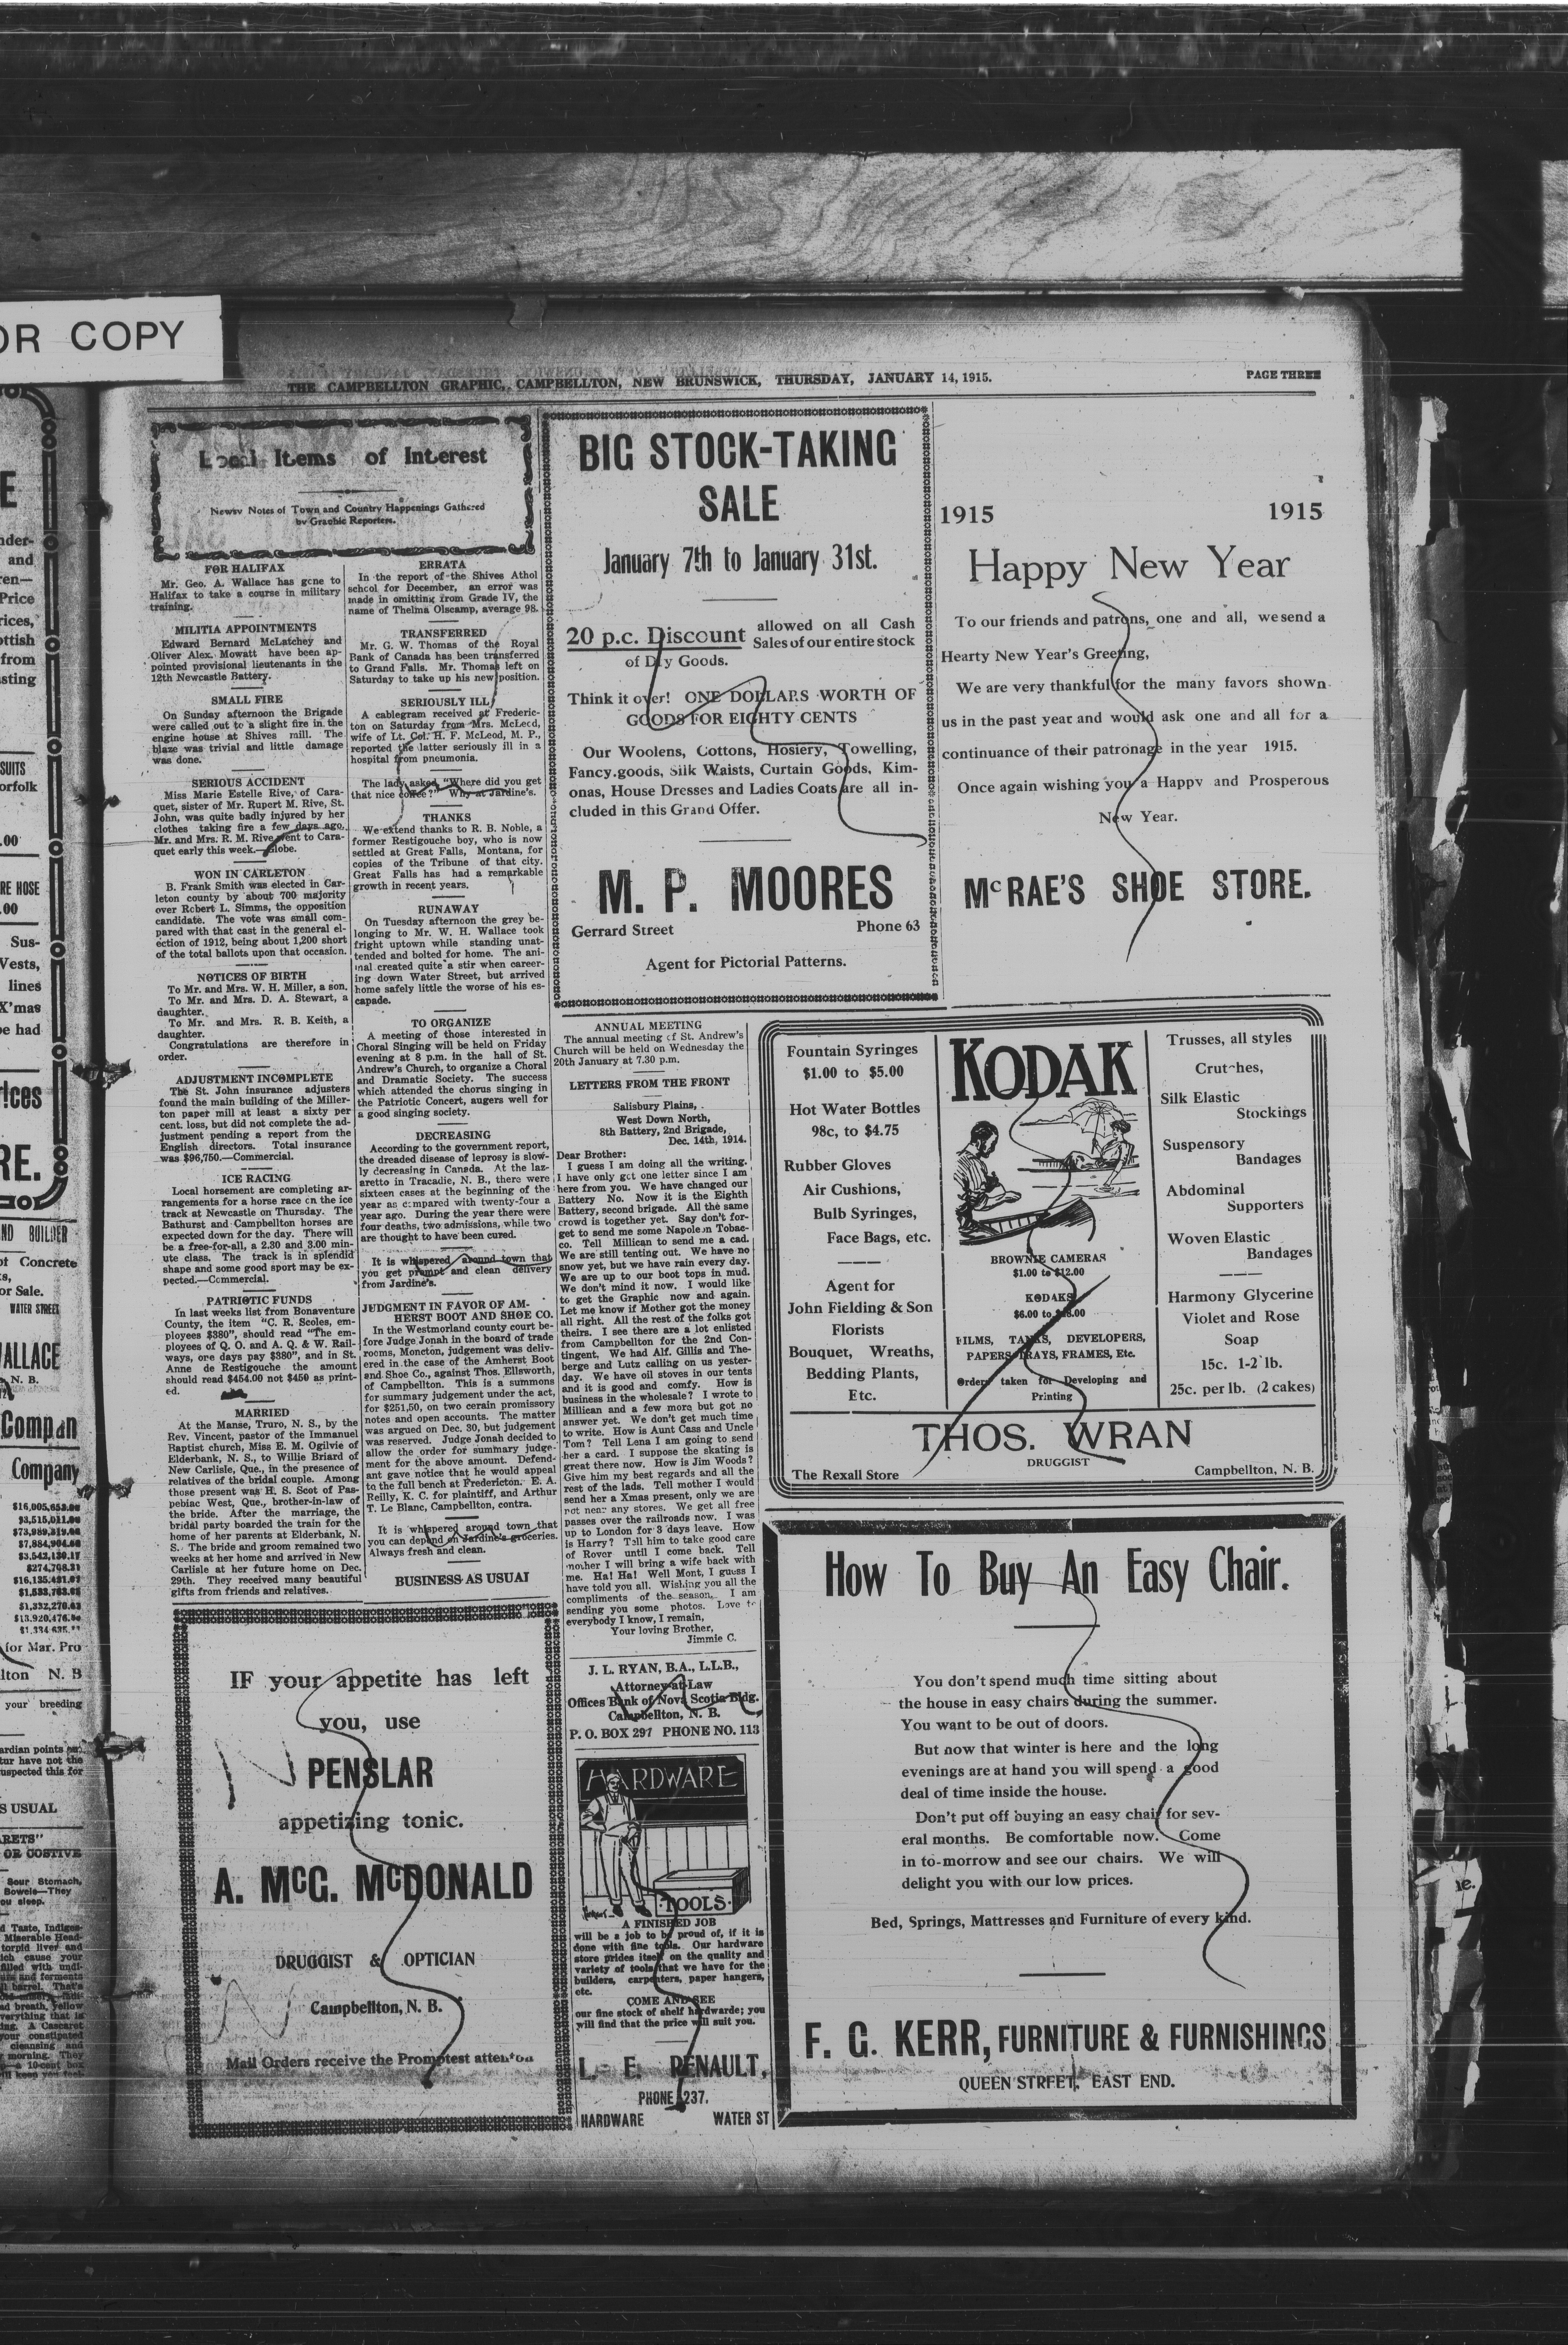 OR COPY
THE CAMPBELLTON GRAPHIC, CAMPBELLTON, NEW BRUNSWICK, THURSDAY, JANUARY 14, 1915.
PAGE THREE
Local Items of Interest
Newsy Notes of Town and Country Happenings Gathered
by Graphic Reporters.
FOR HALIFAX
Mr. Geo. A. Wallace has gone to
Halifax to take a course in military
training.
MILITIA APPOINTMENTS
Edward Bernard McLatchey and
Oliver Alex. Mowatt have been ap-
pointed provisional lieutenants in the
12th Newcastle Battery.
SMALL FIRE
On Sunday afternoon the Brigade
were called out to a slight fire in the
engine house at Shives mill. The
blaze was trivial and little damage
was done.
SERIOUS ACCIDENT
Miss Marie Estelle Rive, of Cara-
quet, sister of Mr. Rupert M. Rive, St.
John, was quite badly injured by her
clothes taking fire a few days ago.
Mr. and Mrs. R. M. Rive went to Cara-
quet early this week.—Globe.
WON IN CARLETON
B. Frank Smith was elected in Car-
leton county by about 700 majority
over Robert L. Simms, the opposition
candidate. The vote was small com-
pared with that cast in the general el-
ection of 1912, being about 1,200 short
of the total ballots upon that occasion.
NOTICES OF BIRTH
To Mr. and Mrs. W. H. Miller, a son.
To Mr. and Mrs. D. A. Stewart, a
daughter.
To Mr. and Mrs. R. B. Keith, a
daughter.
Congratulations are therefore in
order.
ADJUSTMENT INCOMPLETE
The St. John insurance adjusters
found the main building of the Miller-
ton paper mill at least a sixty per
cent. loss, but did not complete the ad-
justment pending a report from the
English directors. Total insurance
was $96,750.—Commercial.
ICE RACING
Local horsement are completing ar-
rangements for a horse race on the ice
track at Newcastle on Thursday. The
Bathurst and Campbellton horses are
expected down for the day. There will
be a free-for-all, a 2.30 and 3.00 min-
ute class. The track is in splendid
shape and some good sport may be ex-
pected.—Commercial.
PATRIOTIC FUNDS
In last weeks list from Bonaventure
County, the item "C. R. Scoles, em-
ployees $380", should read "The em-
ployees of Q. O. and A. Q. & W. Rail-
ways, ore days pay $380", and in St.
Anne de Restigouche the amount
should read $454.00 not $450 as print-
ed.
MARRIED
At the Manse, Truro, N. S., by the
Rev. Vincent, pastor of the Immanuel
Baptist church, Miss E. M. Ogilvie of
Elderbank, N. S., to Willie Briard of
New Carlisle, Que., in the presence of
relatives of the bridal couple. Among
those present was H. S. Scot of Pas-
pebiac West, Que., brother-in-law of
the bride. After the marriage, the
bridal party boarded the train for the
home of her parents at Elderbank, N.
S. The bride and groom remained two
weeks at her home and arrived in New
Carlisle at her future home on Dec.
29th. They received many beautiful
gifts from friends and relatives.
ERRATA
In the report of the Shives Athol
school for December, an error was
made in omitting from Grade IV, the
name of Thelma Olscamp, average 98.
TRANSFERRED
Mr. G. W. Thomas of the Royal
Bank of Canada has been transferred
to Grand Falls. Mr. Thomas left on
Saturday to take up his new position.
SERIOUSLY ILL
A cablegram received at Frederic-
ton on Saturday from Mrs. McLeod,
wife of Lt. Col. H. F. McLeod, M. P.,
reported the latter seriously ill in a
hospital from pneumonia.
The lady asked "Where did you get
that nice coffee?" Why at Jardine's.
THANKS
We extend thanks to R. B. Noble, a
former Restigouche boy, who is now
settled at Great Falls, Montana, for
copies of the Tribune of that city.
Great Falls has had a remarkable
growth in recent years.
RUNAWAY
On Tuesday afternoon the grey be-
longing to Mr. W. H. Wallace took
fright uptown while standing unat-
tended and bolted for home. The ani-
mal created quite a stir when career-
ing down Water Street, but arrived
home safely little the worse of his es-
capade.
TO ORGANIZE
A meeting of those interested in
Choral Singing will be held on Friday
evening at 8 p.m. in the hall of St.
Andrew's Church, to organize a Choral
and Dramatic Society. The success
which attended the chorus singing in
the Patriotic Concert, augers well for
a good singing society.
DECREASING
According to the government report,
the dreaded disease of leprosy is slow-
ly decreasing in Canada. At the laz-
aretto in Tracadie, N. B., there were
sixteen cases at the beginning of the
year as compared with twenty-four a
year ago. During the year there were
four deaths, two admissions, while two
are thought to have been cured.
It is whispered around town that
you get prompt and clean delivery
from Jardine's.
JUDGMENT IN FAVOR OF AM-
HERST BOOT AND SHOE CO.
In the Westmorland county court be-
fore Judge Jonah in the board of trade
rooms, Moncton, judgement was deliv-
ered in the case of the Amherst Boot
and Shoe Co., against Thos. Ellsworth,
of Campbellton. This is a summons
for summary judgement under the act,
for $251,50, on two cerain promissory
notes and open accounts. The matter
was argued on Dec. 30, but judgement
was reserved. Judge Jonah decided to
allow the order for summary judge-
ment for the above amount. Defend-
ant gave notice that he would appeal
to the full bench at Fredericton. E. A.
Reilly, K. C. for plaintiff, and Arthur
T. Le Blanc, Campbellton, contra.
It is whispered around town that
you can depend on Jardine's groceries.
Always fresh and clean.
BUSINESS AS USUAL
IF your appetite has left
you, use
PENSLAR
appetizing tonic.
A. McG. McDONALD
DRUGGIST & OPTICIAN
Campbellton, N. B.
Mail Orders receive the Promptest attention
BIG STOCK-TAKING
SALE
January 7th to January 31st.
20 p.c. Discount allowed on all Cash
Sales of our entire stock
of Dry Goods.
Think it over! ONE DOLLARS WORTH OF
GOODS FOR EIGHTY CENTS
Our Woolens, Cottons, Hosiery, Towelling,
Fancy.goods, Silk Waists, Curtain Goods, Kim-
onas, House Dresses and Ladies Coats are all in-
cluded in this Grand Offer.
M. P. MOORES
Gerrard Street
Phone 63
Agent for Pictorial Patterns.
1915
1915
Happy New Year
To our friends and patrons, one and all, we send a
Hearty New Year's Greeting,
We are very thankful for the many favors shown
us in the past year and would ask one and all for a
continuance of their patronage in the year 1915.
Once again wishing you a Happy and Prosperous
New Year.
McRAE'S SHOE STORE.
ANNUAL MEETING
The annual meeting of St. Andrew's
Church will be held on Wednesday the
20th January at 7.30 p.m.
LETTERS FROM THE FRONT
Salisbury Plains,
West Down North,
8th Battery, 2nd Brigade,
Dec. 14th, 1914.
Dear Brother:
I guess I am doing all the writing.
I have only got one letter since I am
here from you. We have changed our
Battery No. Now it is the Eighth
Battery, second brigade. All the same
crowd is together yet. Say don't for-
get to send me some Napoleon Tobac-
co. Tell Millican to send me a cad.
We are still tenting out. We have no
snow yet, but we have rain every day.
We are up to our boot tops in mud.
We don't mind it now. I would like
to get the Graphic now and again.
Let me know if Mother got the money
all right. All the rest of the folks got
theirs. I see there are a lot enlisted
from Campbellton for the 2nd Con-
tingent. We had Alf. Gillis and The-
berge and Lutz calling on us yester-
day. We have oil stoves in our tents
and it is good and comfy. How is
business in the wholesale? I wrote to
Millican and a few more but got no
answer yet. We don't get much time
to write. How is Aunt Cass and Uncle
Tom? Tell Lena I am going to send
her a card. I suppose the skating is
great there now. How is Jim Woods?
Give him my best regards and all the
rest of the lads. Tell mother I would
send her a Xmas present, only we are
not near any stores. We get all free
passes over the railroads now. I was
up to London for 3 days leave. How
is Harry? Tell him to take good care
of Rover until I come back. Tell
mother I will bring a wife back with
me. Ha! Ha! Well Mont, I guess I
have told you all. Wishing you all the
compliments of the season. I am
sending you some photos. Love to
everybody I know, I remain,
Your loving Brother,
Jimmie C.
J. L. RYAN, B.A., L.L.B.,
Attorney-at-Law
Offices Bank of Nova Scotia Bldg.
Campbellton, N. B.
P. O. BOX 297 PHONE NO. 113
HARDWARE
TOOLS
A FINISHED JOB
will be a job to be proud of, if it is
done with fine tools. Our hardware
store prides itself on the quality and
variety of tools that we have for the
builders, carpenters, paper hangers,
etc.
COME AND SEE
our fine stock of shelf hardwarde; you
will find that the price will suit you.
L. E. RENAULT,
PHONE 237.
HARDWARE WATER ST
Fountain Syringes
$1.00 to $5.00
Hot Water Bottles
98c, to $4.75
Rubber Gloves
Air Cushions,
Bulb Syringes,
Face Bags, etc.
Agent for
John Fielding & Son
Florists
Bouquet, Wreaths,
Bedding Plants,
Etc.
KODAK
BROWNIE CAMERAS
$1.00 to $12.00
KODAKS
$6.00 to
FILMS, TANKS, DEVELOPERS,
PAPERS TRAYS, FRAMES, Etc.
Orders taken for Developing and
Printing
Trusses, all styles
Crutches,
Silk Elastic
Stockings
Suspensory
Bandages
Abdominal
Supporters
Woven Elastic
Bandages
Harmony Glycerine
Violet and Rose
Soap
15c. 1-2 lb.
25c. per lb. (2 cakes)
THOS. WRAN
DRUGGIST
The Rexall Store
Campbellton, N. B.
How To Buy An Easy Chair.
You don't spend much time sitting about
the house in easy chairs during the summer.
You want to be out of doors.
But now that winter is here and the long
evenings are at hand you will spend a good
deal of time inside the house.
Don't put off buying an easy chair for sev-
eral months. Be comfortable now. Come
in to-morrow and see our chairs. We will
delight you with our low prices.
Bed, Springs, Mattresses and Furniture of every kind.
F. G. KERR, FURNITURE & FURNISHINGS
QUEEN STREET, EAST END.